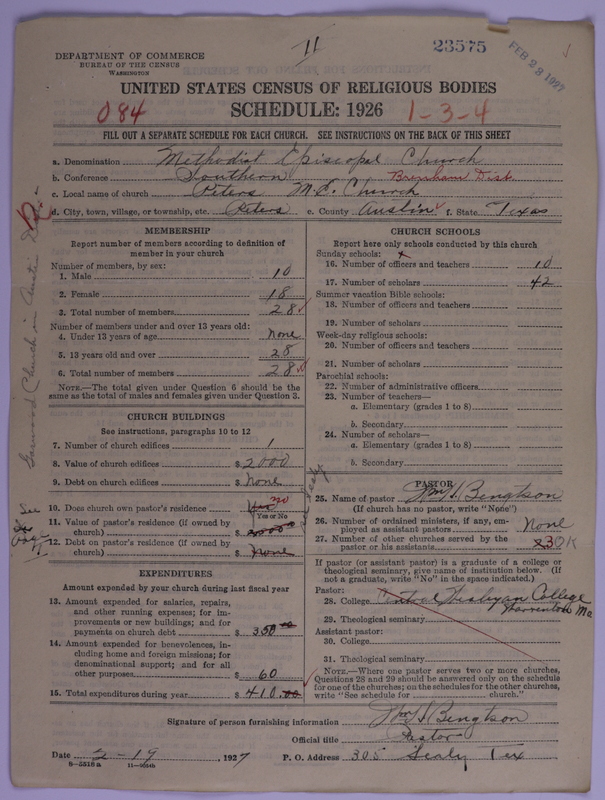 11
23575
FEB 28 1927
DEPARTMENT OF COMMERCE
BUREAU OF THE CENSUS
WASHINGTON
UNITED STATES CENSUS OF RELIGIOUS BODIES
084 SCHEDULE: 1926 1-3-4
FILL OUT A SEPARATE SCHEDULE FOR EACH CHURCH. SEE INSTRUCTIONS ON THE BACK OF THIS SHEET
a. Denomination Methodist Episcopal Church
b. Conference Southern Brenham Dist.
c. Local name of church Peters M.E. Church
d. City, town, village, or township, etc. Peters e. County Austin f. State Texas
MEMBERSHIP
Report number of members according to definition of
member in your church
Number of members, by sex:
1. Male 10
2. Female 18
3. Total number of members 28
Number of members under and over 13 years old:
4. Under 13 years of age None
5. 13 years old and over 28
6. Total number of members 28
NOTE.—The total given under Question 6 should be the
same as the total of males and females given under Question 3.
CHURCH BUILDINGS
See instructions, paragraphs 10 to 12
7. Number of church edifices 1
8. Value of church edifices $ 2000
9. Debt on church edifices $ None
10. Does church own pastor's residence no
Yes or No
11. Value of pastor's residence (if owned by
church) $
12. Debt on pastor's residence (if owned by
church) $ None
See
Page
EXPENDITURES
Amount expended by your church during last fiscal year
13. Amount expended for salaries, repairs,
and other running expenses; for im-
provements or new buildings; and for
payments on church debt $ 350 00
14. Amount expended for benevolences, in-
cluding home and foreign missions; for
denominational support; and for all
other purposes $ 60
15. Total expenditures during year $ 410.00
CHURCH SCHOOLS
Report here only schools conducted by this church
Sunday schools:
16. Number of officers and teachers 10
17. Number of scholars 42
Summer vacation Bible schools:
18. Number of officers and teachers
19. Number of scholars
Week-day religious schools:
20. Number of officers and teachers
21. Number of scholars
Parochial schools:
22. Number of administrative officers
23. Number of teachers—
a. Elementary (grades 1 to 8)
b. Secondary
24. Number of scholars—
a. Elementary (grades 1 to 8)
b. Secondary
See Sealy
PASTOR
25. Name of pastor Wm. H. Bengtson
(If church has no pastor, write "None")
26. Number of ordained ministers, if any, em-
ployed as assistant pastors None
27. Number of other churches served by the
pastor or his assistants 3 OK
If pastor (or assistant pastor) is a graduate of a college or
theological seminary, give name of institution below. (If
not a graduate, write "No" in the space indicated.)
Pastor:
28. College Central Wesleyan College
Warrenton Mo
29. Theological seminary
Assistant pastor:
30. College
31. Theological seminary
NOTE.—Where one pastor serves two or more churches,
Questions 28 and 29 should be answered only on the schedule
for one of the churches; on the schedules for the other churches,
write "See schedule for church."
Signature of person furnishing information Wm H Bengtson
Official title Pastor
Date 2-19, 1927 P. O. Address 305 Sealy Tex
8-5518a